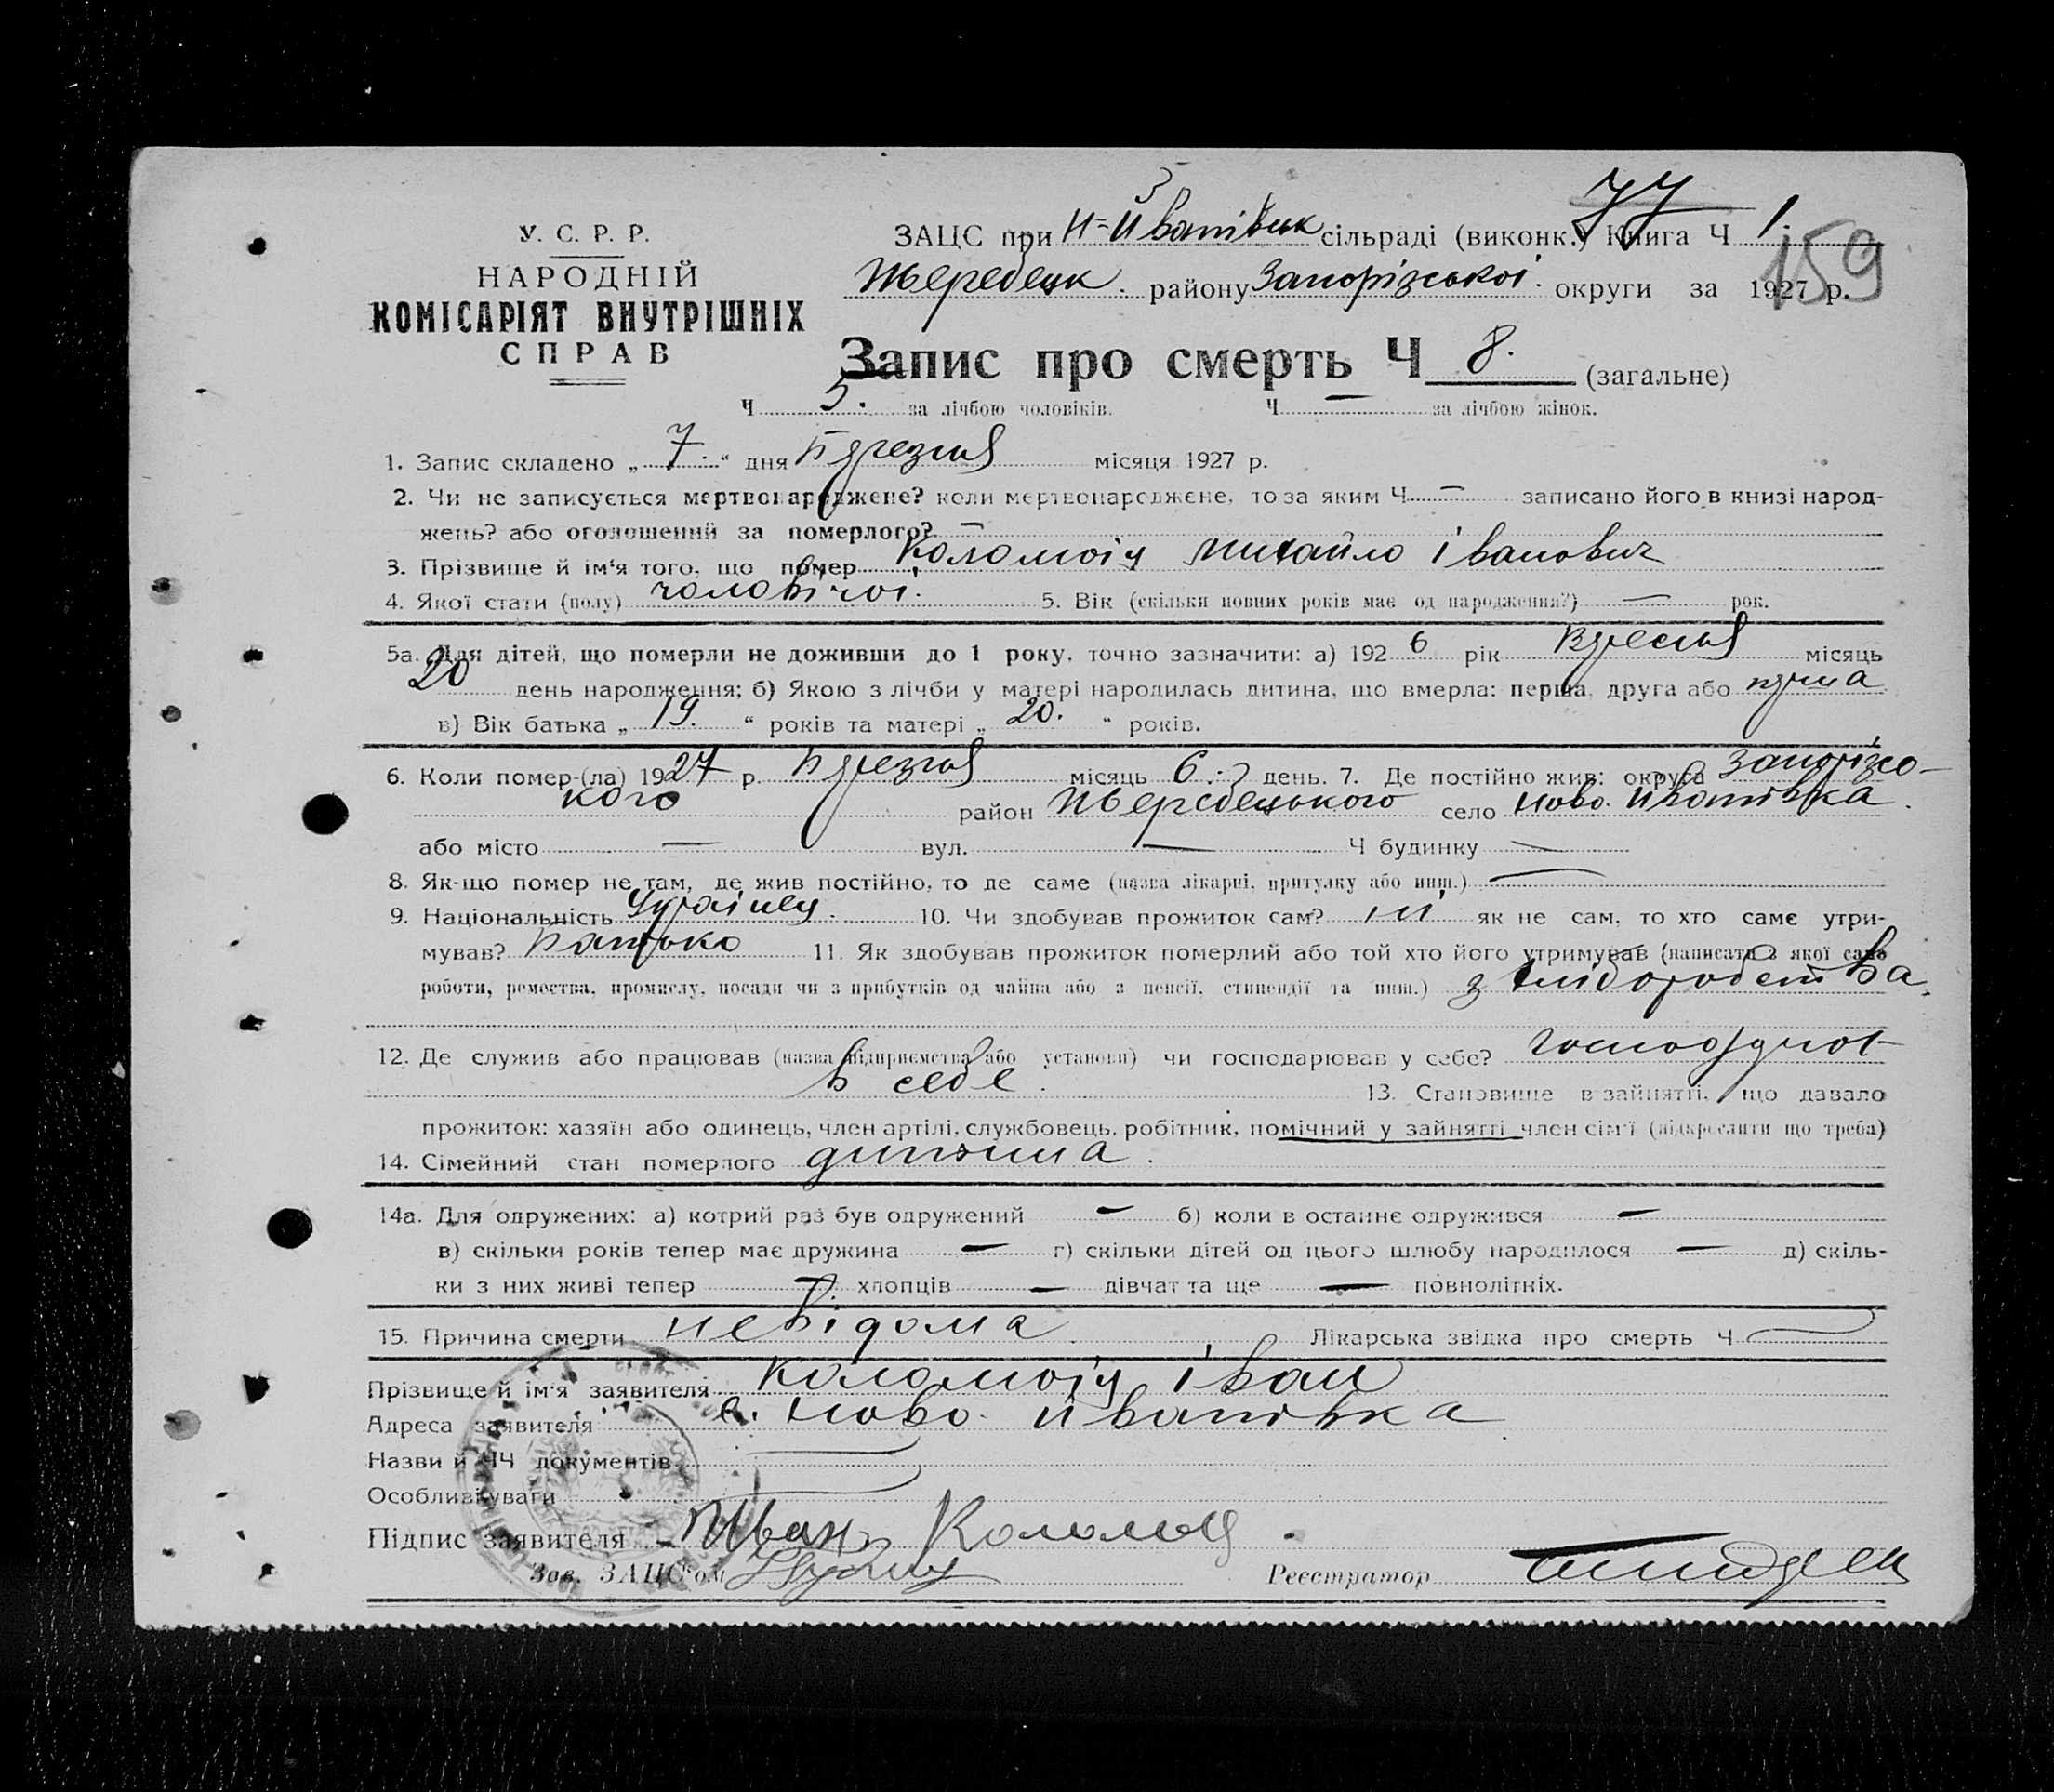 77
159
У. С. Р. Р.
НАРОДНІЙ
КОМІСАРІЯТ ВНУТРІШНІХ
СПРАВ
ЗАЦС при Н-Йванівськ сільраді (виконк.) Книга Ч 1.
Жеребецьк. району Запорізької округи за 1927 р.
Запис про смерть Ч 8. (загальне)
Ч 5. за лічбою чоловіків. Ч — за лічбою жінок.
1. Запис складено „7.“ дня Березня місяця 1927 р.
2. Чи не записується мертвонароджене? коли мертвонароджене, то за яким Ч — записано його в книзі народ-
жень? або оголошений за померлого? —
3. Прізвище й ім'я того, що помер Коломоіц Михайло Іванович
4. Якої стати (полу) чоловічої. 5. Вік (скільки повних років має од народження?) — рок.
5а. Для дітей, що померли не доживши до 1 року, точно зазначити: а) 1926 рік Вересня місяць
20 день народження; б) Якою з лічби у матері народилась дитина, що вмерла: перша, друга або перша
в) Вік батька „19.“ років та матері „20.“ років.
6. Коли помер-(ла) 1927 р. Березня місяць 6. день. 7. Де постійно жив: округа Запорізь-
кого район Жеребецького село Ново. Йванівка.
або місто — вул. — Ч будинку —
8. Як-що помер не там, де жив постійно, то де саме (назва лікарні, притулку або инш.) —
9. Національність Українец. 10. Чи здобував прожиток сам? ні як не сам, то хто саме утри-
мував? Батько 11. Як здобував прожиток померлий або той хто його утримував (написати з якої само
роботи, ремества, промислу, посади чи з прибутків од майна або з пенсії, стипендії та инш.) з хліборобства.
12. Де служив або працював (назва підприємства або установи) чи господарював у себе?
в себе. 13. Становище в зайнятті, що давало
прожиток: хазяїн або одинець, член артілі, службовець, робітник, помічний у зайнятті член сім'ї (підкреслити що треба)
14. Сімейний стан померлого дитина.
14а. Для одружених: а) котрий раз був одружений — б) коли в останнє одружився —
в) скільки років тепер має дружина — г) скільки дітей од цього шлюбу народилося — д) скіль-
ки з них живі тепер — хлопців — дівчат та ще — повнолітніх.
15. Причина смерти невідома. Лікарська звідка про смерть Ч —
Прізвище й ім'я заявителя Коломоіц Іван
Адреса заявителя с. Ново. Йванівка
Назви й ЧЧ документів
Особливі уваги
Підпис заявителя Иван Коломоец
Зав. ЗАЦС'ом Реєстратор